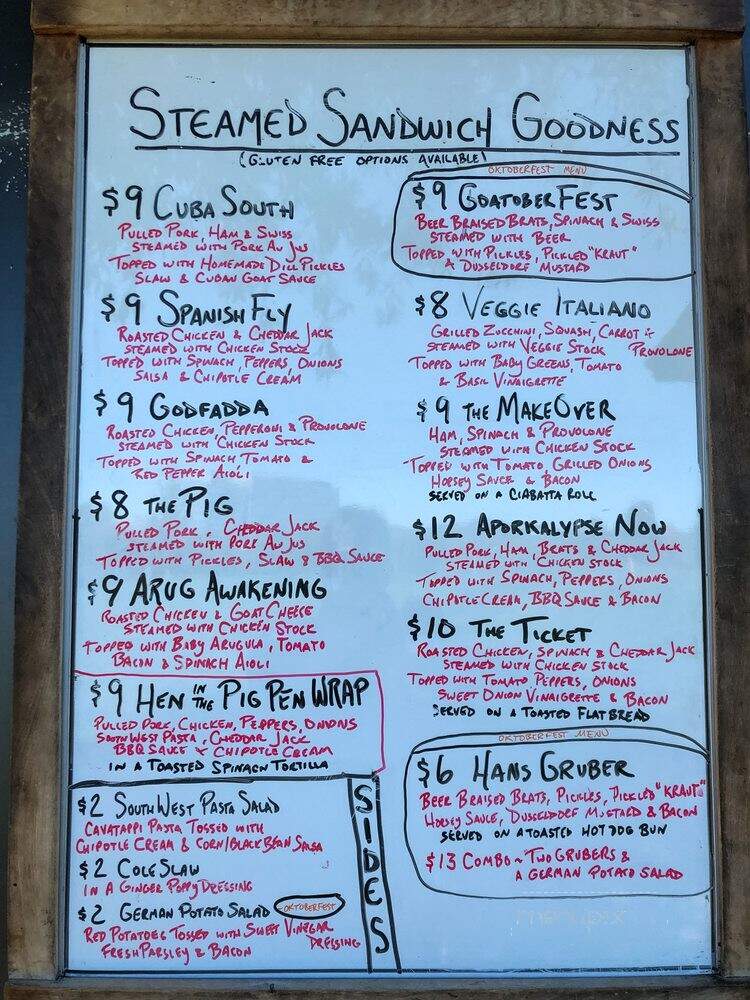 STEAMED SANDWICH GOODNESS
(GLUTEN FREE OPTIONS AVAILABLE)
$9 CUBA SOUTH
PULLED PORK, HAM & SWISS
STEAMED WITH PORK AU JUS
TOPPED WITH HOMEMADE DILL PICKLES
SLAW & CUBAN GOAT SAUCE
$9 SPANISH FLY
ROASTED CHICKEN & CHEDDAR JACK
STEAMED WITH CHICKEN STOCK
TOPPED WITH SPINACH, PEPPERS, ONIONS
SALSA & CHIPOTLE CREAM
$9 GODFADDA
ROASTED CHICKEN, PEPPERONI & PROVOLONE
STEAMED WITH CHICKEN STOCK
TOPPED WITH SPINACH TOMATO &
RED PEPPER AIOLI
$8 THE PIG
PULLED PORK, CHEDDAR JACK
STEAMED WITH PORK AU JUS
TOPPED WITH PICKLES, SLAW & BBQ SAUCE
$9 ARUG AWAKENING
ROASTED CHICKEN & GOAT CHEESE
STEAMED WITH CHICKEN STOCK
TOPPED WITH BABY ARUGULA, TOMATO
BACON & SPINACH AIOLI
$9 HEN IN THE PIG PEN WRAP
PULLED PORK, CHICKEN, PEPPERS, ONIONS
SOUTHWEST PASTA, CHEDDAR JACK
BBQ SAUCE & CHIPOTLE CREAM
IN A TOASTED SPINACH TORTILLA
SIDES
$2 SOUTHWEST PASTA SALAD
CAVATAPPI PASTA TOSSED WITH
CHIPOTLE CREAM & CORN/BLACK BEAN SALSA
$2 COLESLAW
IN A GINGER POPPY DRESSING
$2 GERMAN POTATO SALAD OKTOBERFEST
RED POTATOES TOSSED WITH SWEET VINEGAR
DRESSING
FRESH PARSLEY & BACON
OKTOBERFEST MENU
$9 GOATOBERFEST
BEER BRAISED BRATS, SPINACH & SWISS
STEAMED WITH BEER
TOPPED WITH PICKLES, PICKLED "KRAUT"
& DUSSELDORF MUSTARD
$8 VEGGIE ITALIANO
GRILLED ZUCCHINI, SQUASH, CARROT &
STEAMED WITH VEGGIE STOCK PROVOLONE
TOPPED WITH BABY GREENS, TOMATO
& BASIL VINAIGRETTE
$9 THE MAKEOVER
HAM, SPINACH & PROVOLONE
STEAMED WITH CHICKEN STOCK
TOPPED WITH TOMATO, GRILLED ONIONS
HORSEY SAUCE & BACON
SERVED ON A CIABATTA ROLL
$12 APORKALYPSE NOW
PULLED PORK, HAM, BRATS & CHEDDAR JACK
STEAMED WITH CHICKEN STOCK
TOPPED WITH SPINACH, PEPPERS, ONIONS
CHIPOTLE CREAM, BBQ SAUCE & BACON
$10 THE TICKET
ROASTED CHICKEN, SPINACH & CHEDDAR JACK
STEAMED WITH CHICKEN STOCK
TOPPED WITH TOMATO PEPPERS, ONIONS
SWEET ONION VINAIGRETTE & BACON
SERVED ON A TOASTED FLATBREAD
OKTOBERFEST MENU
$6 HANS GRUBER
BEER BRAISED BRATS, PICKLES, PICKLED "KRAUT"
HORSEY SAUCE, DUSSELDORF MUSTARD & BACON
SERVED ON A TOASTED HOT DOG BUN
$13 COMBO ~ TWO GRUBERS &
A GERMAN POTATO SALAD